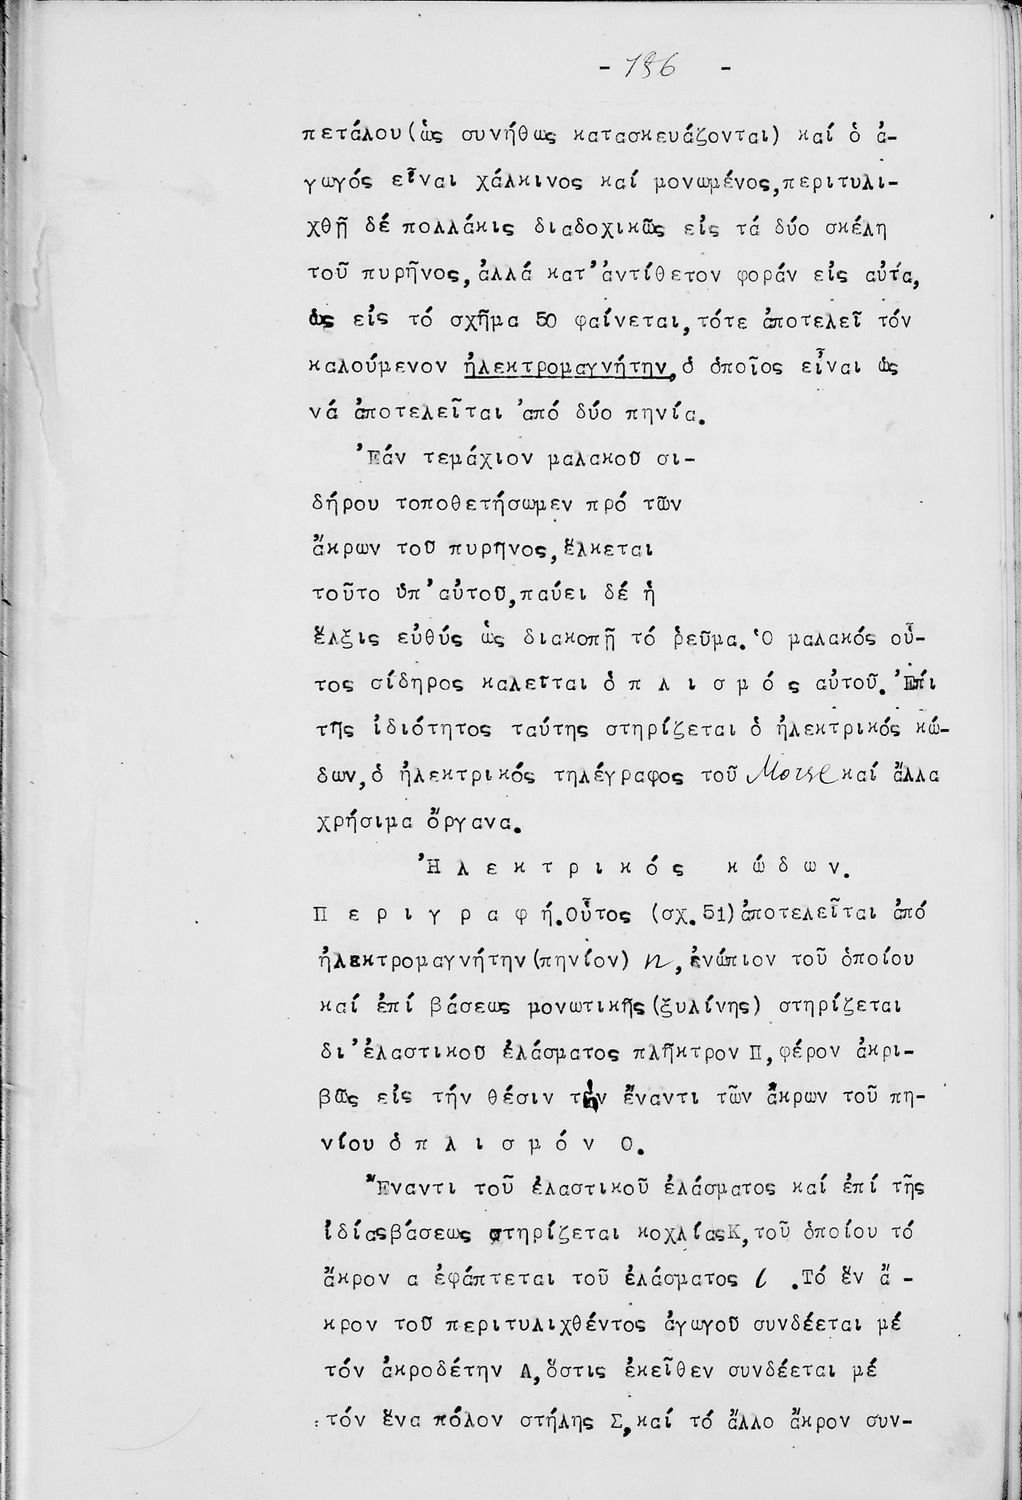 - 186 -
πετάλου(ὡς συνήθως κατασκευάζονται) καί ὁ ἀ-
γωγός εἶναι χάλκινος καί μονωμένος,περιτυλι-
χθῇ δέ πολλάκις διαδοχικῶς εἰς τά δύο σκέλη
τοῦ πυρῆνος,ἀλλά κατ'ἀντίθετον φοράν εἰς αὐτά,
ὡς εἰς τό σχῆμα 50 φαίνεται,τότε ἀποτελεῖ τόν
καλούμενον ἠλεκτρομαγνήτην,ὁ ὁποῖος εἶναι ὡς
νά ἀποτελεῖται ἀπό δύο πηνία.
Ἐάν τεμάχιον μαλακοῦ σι-
δήρου τοποθετήσωμεν πρό τῶν
ἄκρων τοῦ πυρῆνος,ἕλκεται
τοῦτο ὑπ'αὐτοῦ,παύει δέ ἡ
ἕλξις εὐθύς ὡς διακοπῇ τό ῥεῦμα.Ὁ μαλακός οὗ-
τος σίδηρος καλεῖται ὁ π λ ι σ μ ό ς αὐτοῦ.Ἐπί
τῆς ἰδιότητος ταύτης στηρίζεται ὁ ἠλεκτρικός κώ-
δων,ὁ ἠλεκτρικός τηλέγραφος τοῦ Morse καί ἄλλα
χρήσιμα ὄργανα.
Ἠ λ ε κ τ ρ ι κ ό ς κ ώ δ ω ν.
Π ε ρ ι γ ρ α φ ή.Οὗτος (σχ.51)ἀποτελεῖται ἀπό
ἠλεκτρομαγνήτην(πηνίον) n,ἐνώπιον τοῦ ὁποίου
καί ἐπί βάσεως μονωτικῆς(ξυλίνης) στηρίζεται
δι'ἐλαστικοῦ ἐλάσματος πλῆκτρον Π,φέρον ἀκρι-
βῶς εἰς τήν θέσιν τήν ἔναντι τῶν ἄκρων τοῦ πη-
νίου ὁ π λ ι σ μ ό ν Ο.
Ἔναντι τοῦ ἐλαστικοῦ ἐλάσματος καί ἐπί τῆς
ἰδίαςβάσεως στηρίζεται κοχλίαςΚ,τοῦ ὁποίου τό
ἄκρον α ἐφάπτεται τοῦ ἐλάσματος l .Τό ἕν ἄ -
κρον τοῦ περιτυλιχθέντος ἀγωγοῦ συνδέεται μέ
τόν ἀκροδέτην Α,ὅστις ἐκεῖθεν συνδέεται μέ
τόν ἕνα πόλον στήλης Σ,καί τό ἄλλο ἄκρον συν-